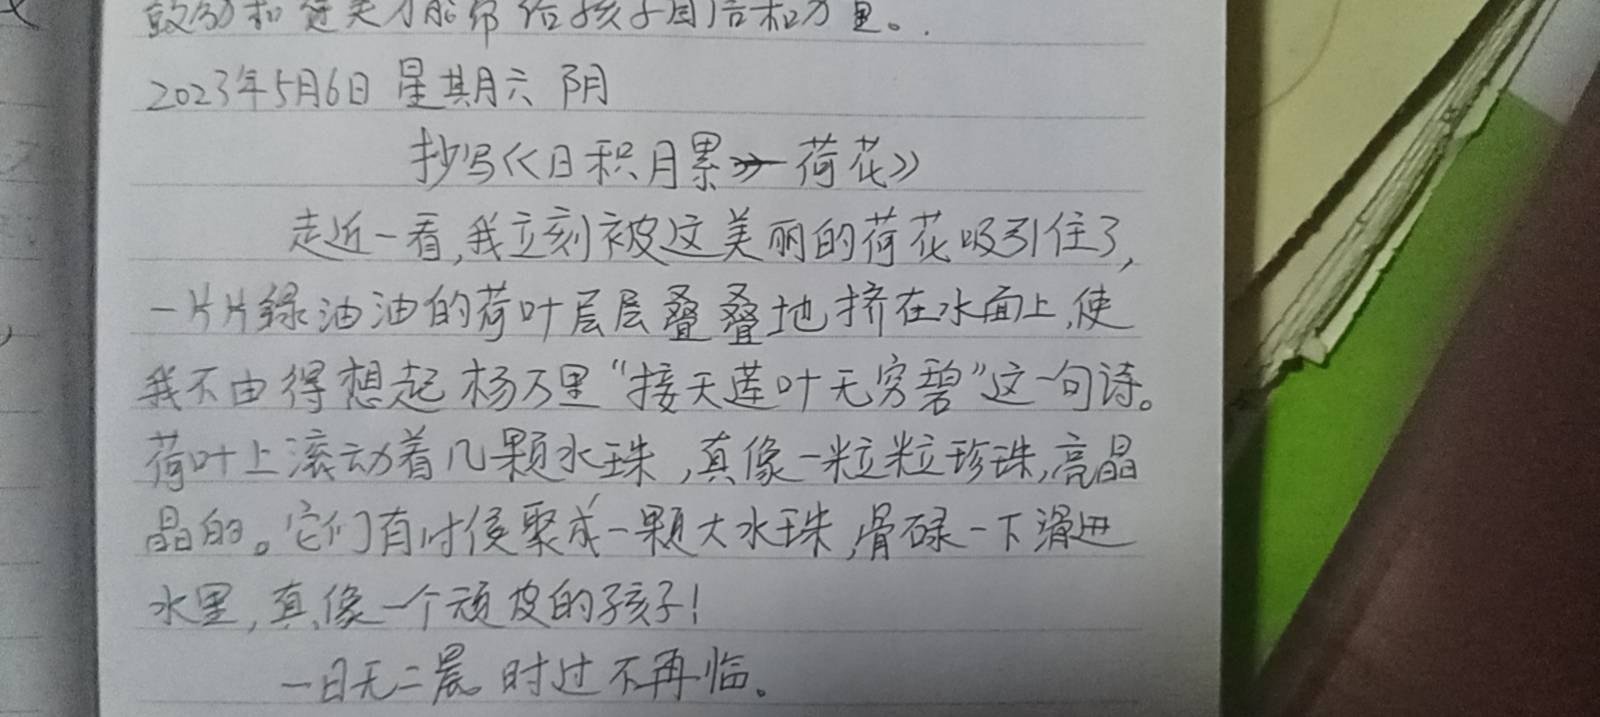 鼓励和赞美才能带给孩子自信和力量。
2023年5月6日 星期六 阴
抄写《日积月累》—荷花》
走近一看,我立刻被这美丽的荷花吸引住了,
一片片绿油油的荷叶层层叠叠地挤在水面上,使
我不由得想起杨万里“接天莲叶无穷碧”这一句诗。
荷叶上滚动着几颗水珠,真像一粒粒珍珠,亮晶
晶的。它们有时候聚成一颗大水珠,骨碌一下滑进
水里,真像一个顽皮的孩子!
一日无二晨。时过不再临。